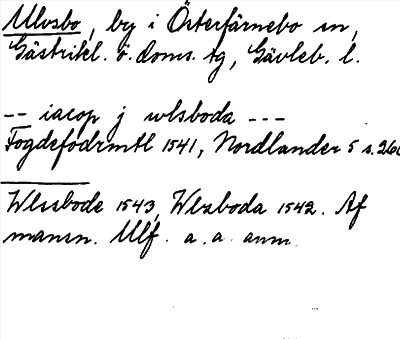 Ulvsbo, by i Österfärnebo sn,
Gästrikl. ö. doms. tg, Gävleb. l.
-- iacop j wlsboda ---
Fogdefodrmtl 1541, Nordlander 5 s. 260
Wlssbode 1543, Wlzboda 1542. Af
mansn. Ulf. a. a. anm.